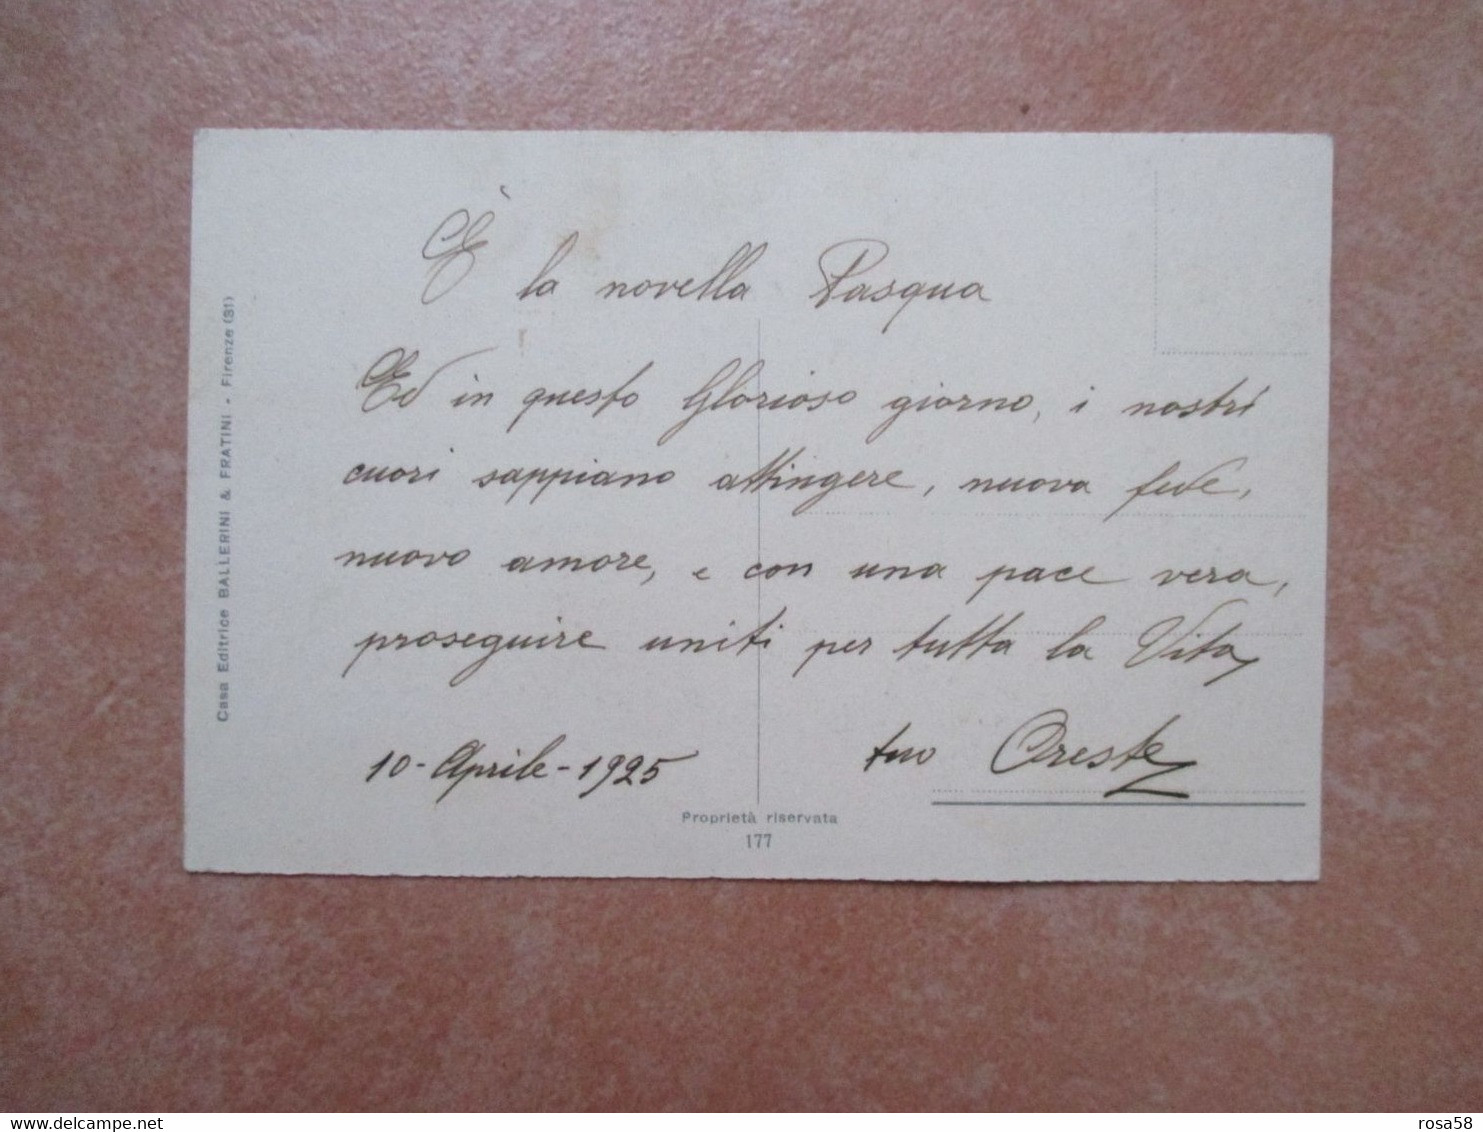 È la novella Pasqua
Ed in questo Glorioso giorno, i nostri
cuori sappiano attingere, nuova fede,
nuovo amore, e con una pace vera,
proseguire uniti per tutta la Vita
10 - Aprile - 1925
tuo Oreste
Casa Editrice BALLERINI & FRATINI - Firenze (31)
Proprietà riservata
177
delcampe.net
rosa58